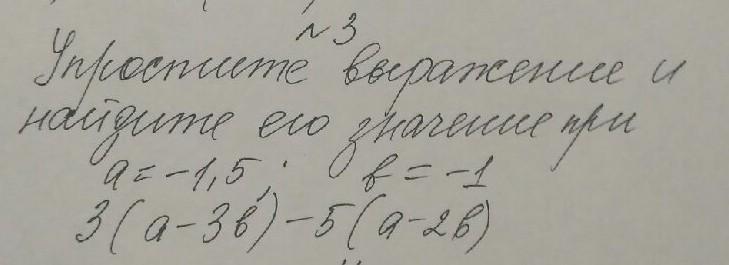 №3
Упростите выражение и
найдите его значение при
a = -1,5; в = -1
3(a-3в)-5(a-2в)